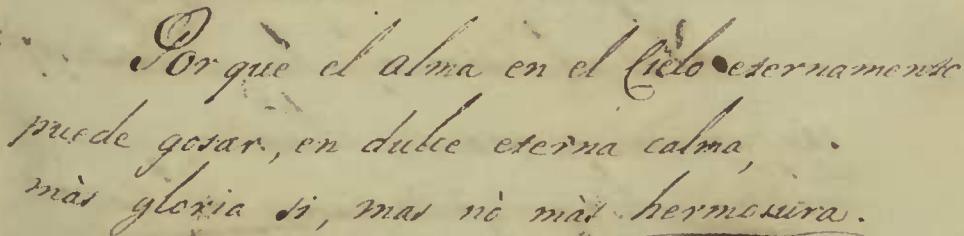 Por què el alma en el Cielo eternamente
puede gosar, en dulce eterna calma,
màs gloria si, mas nò màs hermosura.